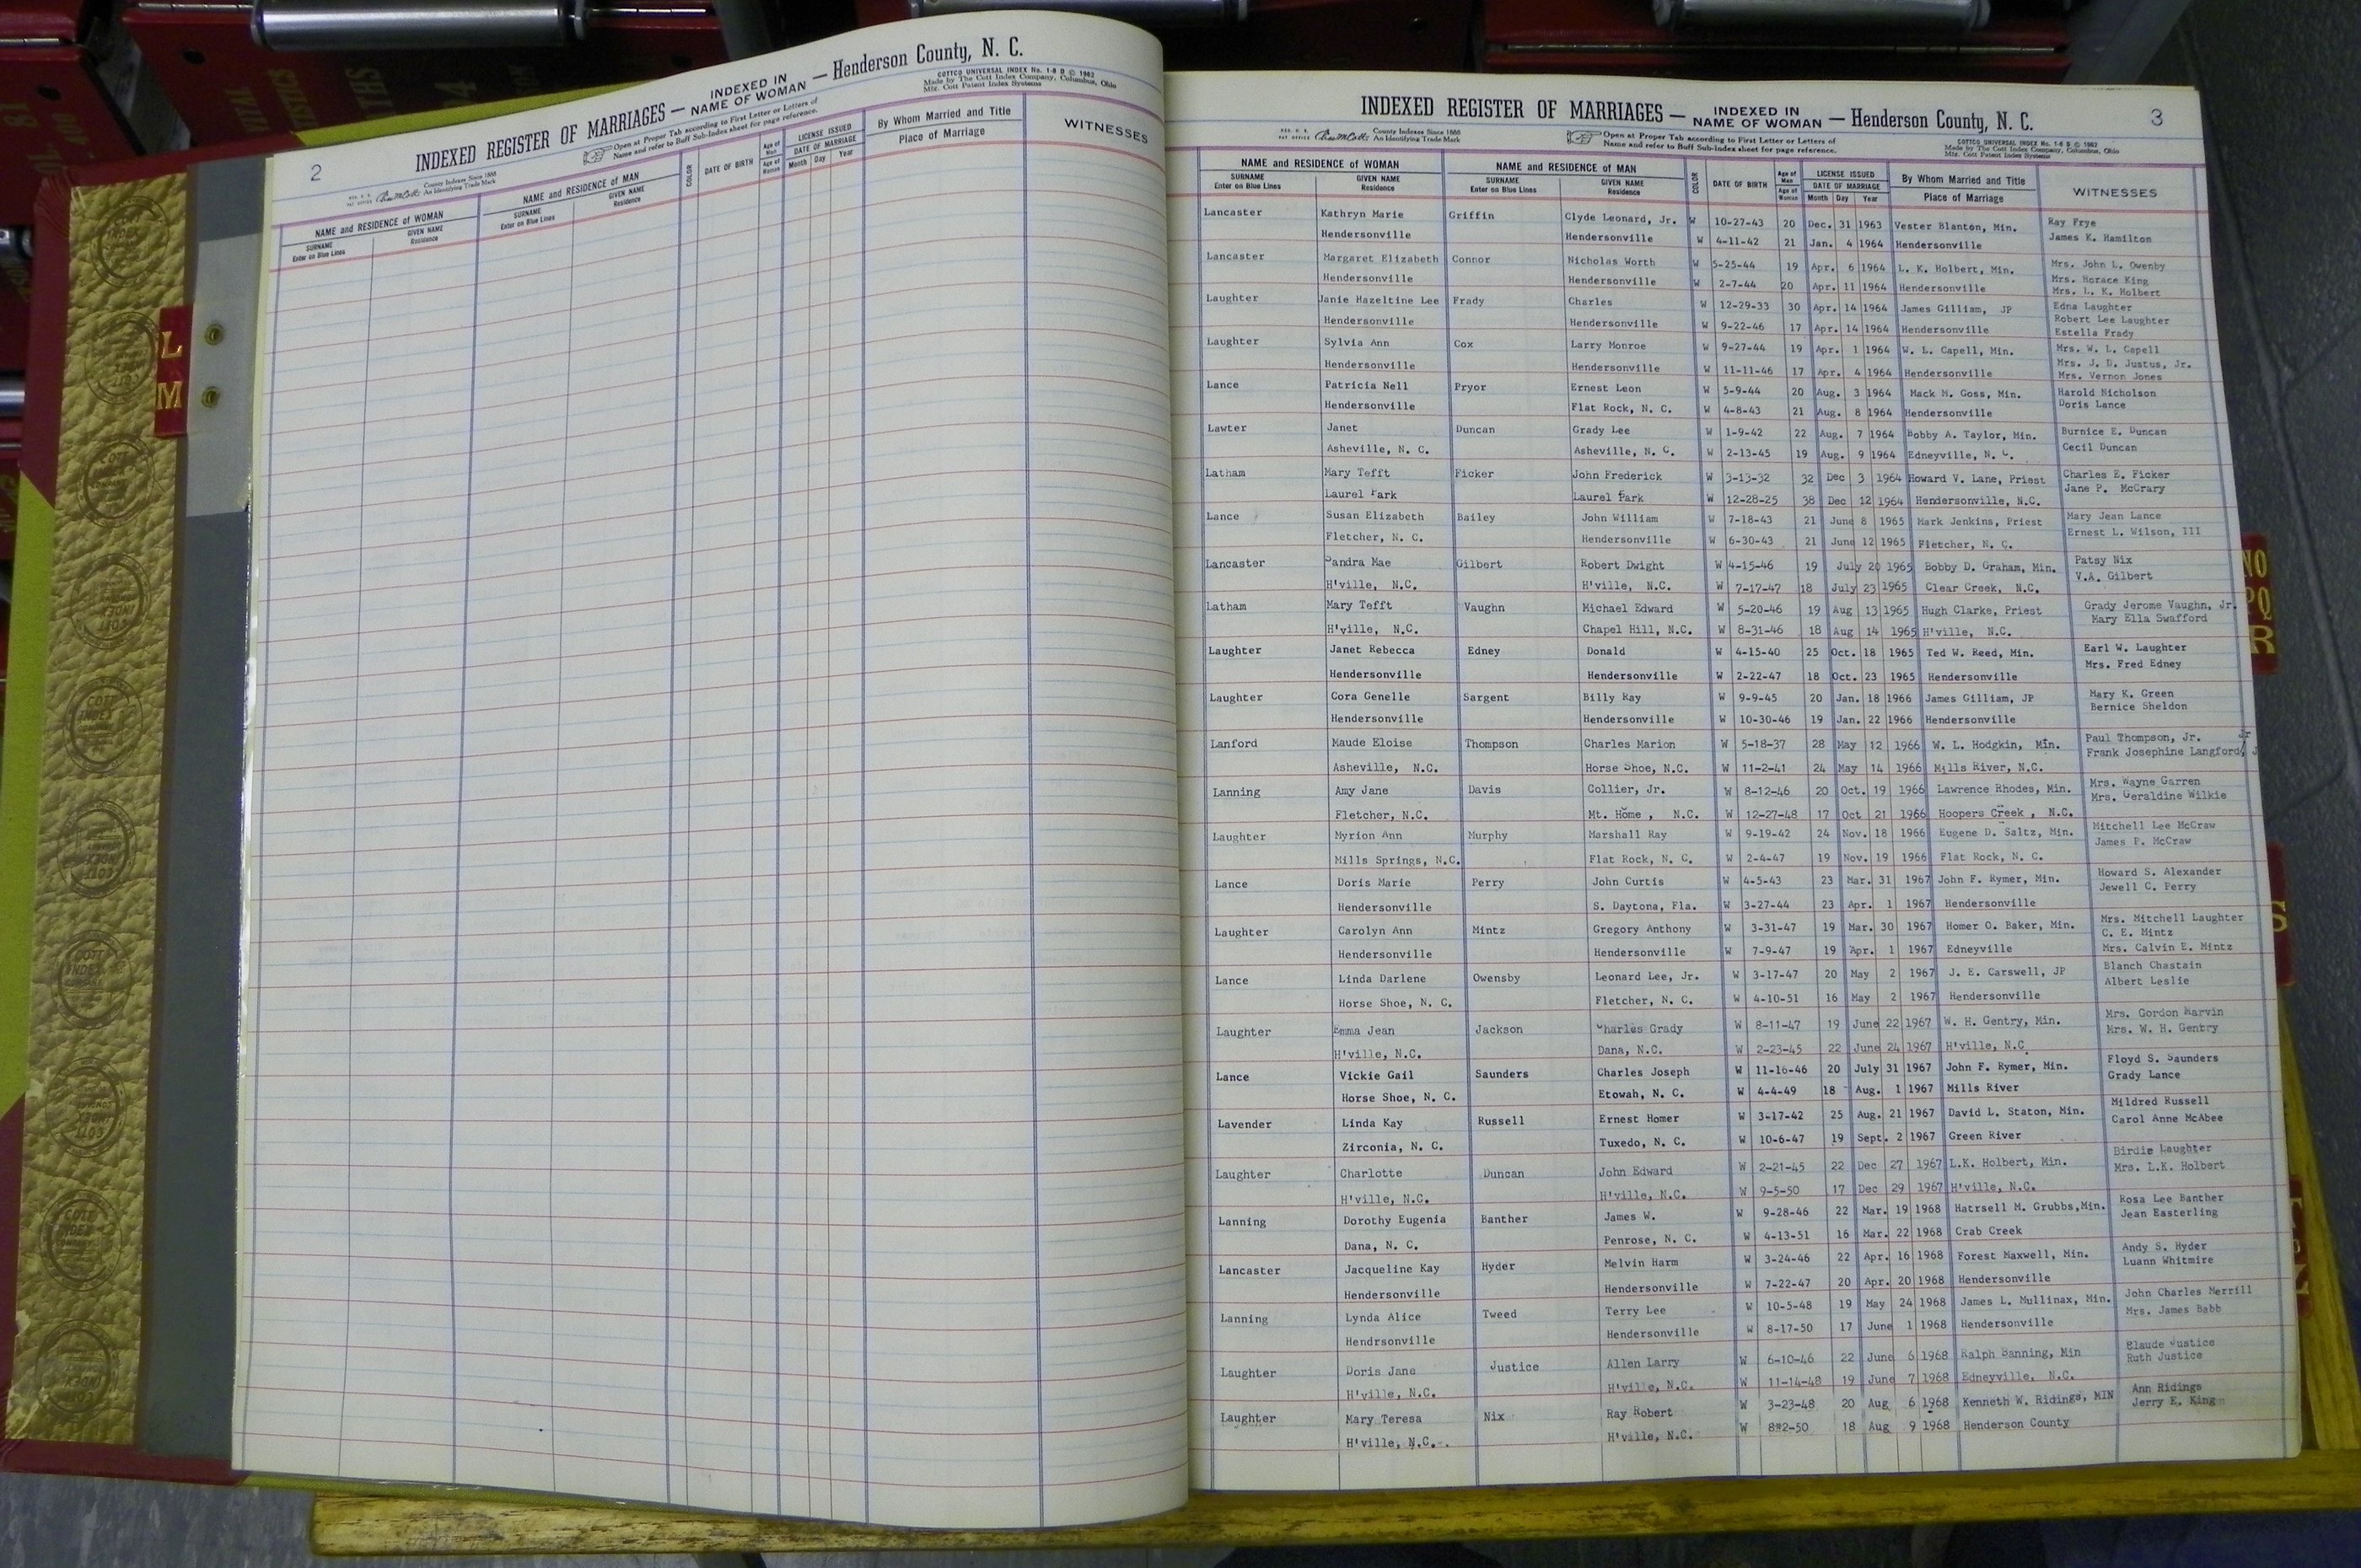 2
INDEXED REGISTER OF MARRIAGES — INDEXED IN NAME OF WOMAN — Henderson County, N. C.
County Indexes Since 1888
An Identifying Trade Mark
Open at Proper Tab according to First Letter or Letters of
Name and refer to Buff Sub-Index sheet for page reference.
COTTCO UNIVERSAL INDEX No. 1-8 D © 1962
Made by The Cott Index Company, Columbus, Ohio
Mfg. Cott Patent Index Systems
NAME and RESIDENCE of WOMAN NAME and RESIDENCE of MAN COLOR DATE OF BIRTH Age of Man LICENSE ISSUED By Whom Married and Title WITNESSES
SURNAME GIVEN NAME SURNAME GIVEN NAME Age of Woman DATE OF MARRIAGE Place of Marriage
Enter on Blue Lines Residence Enter on Blue Lines Residence Month Day Year
L
M
INDEXED REGISTER OF MARRIAGES — INDEXED IN NAME OF WOMAN — Henderson County, N. C.
3
County Indexes Since 1888
An Identifying Trade Mark
Open at Proper Tab according to First Letter or Letters of
Name and refer to Buff Sub-Index sheet for page reference.
COTTCO UNIVERSAL INDEX No. 1-8 D © 1962
Made by The Cott Index Company, Columbus, Ohio
Mfg. Cott Patent Index Systems
NAME and RESIDENCE of WOMAN NAME and RESIDENCE of MAN COLOR DATE OF BIRTH Age of Man LICENSE ISSUED By Whom Married and Title WITNESSES
SURNAME GIVEN NAME SURNAME GIVEN NAME Age of Woman DATE OF MARRIAGE Place of Marriage
Enter on Blue Lines Residence Enter on Blue Lines Residence Month Day Year
Lancaster Kathryn Marie Griffin Clyde Leonard, Jr. W 10-27-43 20 Dec. 31 1963 Vester Blanton, Min. Ray Frye
Hendersonville Hendersonville W 4-11-42 21 Jan. 4 1964 Hendersonville James K. Hamilton
Lancaster Margaret Elizabeth Connor Nicholas Worth W 5-25-44 19 Apr. 6 1964 L. K. Holbert, Min. Mrs. John L. Owenby
Hendersonville Hendersonville W 2-7-44 20 Apr. 11 1964 Hendersonville Mrs. Horace King
Mrs. L. K. Holbert
Laughter Janie Hazeltine Lee Frady Charles W 12-29-33 30 Apr. 14 1964 James Gilliam, JP Edna Laughter
Hendersonville Hendersonville W 9-22-46 17 Apr. 14 1964 Hendersonville Robert Lee Laughter
Estella Frady
Laughter Sylvia Ann Cox Larry Monroe W 9-27-44 19 Apr. 1 1964 W. L. Capell, Min. Mrs. W. L. Capell
Hendersonville Hendersonville W 11-11-46 17 Apr. 4 1964 Hendersonville Mrs. J. D. Justus, Jr.
Mrs. Vernon Jones
Lance Patricia Nell Pryor Ernest Leon W 5-9-44 20 Aug. 3 1964 Mack M. Goss, Min. Harold Nicholson
Hendersonville Flat Rock, N. C. W 4-8-43 21 Aug. 8 1964 Hendersonville Doris Lance
Lawter Janet Duncan Grady Lee W 1-9-42 22 Aug. 7 1964 Bobby A. Taylor, Min. Burnice E. Duncan
Asheville, N. C. Asheville, N. C. W 2-13-45 19 Aug. 9 1964 Edneyville, N. C. Cecil Duncan
Latham Mary Tefft Ficker John Frederick W 3-13-32 32 Dec 3 1964 Howard V. Lane, Priest Charles E. Ficker
Laurel Park Laurel Park W 12-28-25 38 Dec 12 1964 Hendersonville, N.C. Jane P. McCrary
Lance Susan Elizabeth Bailey John William W 7-18-43 21 June 8 1965 Mark Jenkins, Priest Mary Jean Lance
Fletcher, N. C. Hendersonville W 6-30-43 21 June 12 1965 Fletcher, N. C. Ernest L. Wilson, III
Lancaster Sandra Mae Gilbert Robert Dwight W 4-15-46 19 July 20 1965 Bobby D. Graham, Min. Patsy Nix
H'ville, N.C. H'ville, N.C. W 7-17-47 18 July 23 1965 Clear Creek, N.C. V.A. Gilbert
Latham Mary Tefft Vaughn Michael Edward W 5-20-46 19 Aug 13 1965 Hugh Clarke, Priest Grady Jerome Vaughn, Jr.
H'ville, N.C. Chapel Hill, N.C. W 8-31-46 18 Aug 14 1965 H'ville, N.C. Mary Ella Swafford
Laughter Janet Rebecca Edney Donald W 4-15-40 25 Oct. 18 1965 Ted W. Reed, Min. Earl W. Laughter
Hendersonville Hendersonville W 2-22-47 18 Oct. 23 1965 Hendersonville Mrs. Fred Edney
Laughter Cora Genelle Sargent Billy Ray W 9-9-45 20 Jan. 18 1966 James Gilliam, JP Mary K. Green
Hendersonville Hendersonville W 10-30-46 19 Jan. 22 1966 Hendersonville Bernice Sheldon
Lanford Maude Eloise Thompson Charles Marion W 5-18-37 28 May 12 1966 W. L. Hodgkin, Min. Paul Thompson, Jr.
Asheville, N.C. Horse Shoe, N.C. W 11-2-41 24 May 14 1966 Mills River, N.C. Frank Josephine Langford, Jr
Lanning Amy Jane Davis Collier, Jr. W 8-12-46 20 Oct. 19 1966 Lawrence Rhodes, Min. Mrs. Wayne Garren
Fletcher, N.C. Mt. Home , N.C. W 12-27-48 17 Oct 21 1966 Hoopers Creek , N.C. Mrs. Geraldine Wilkie
Laughter Myrion Ann Murphy Marshall Ray W 9-19-42 24 Nov. 18 1966 Eugene D. Saltz, Min. Mitchell Lee McCraw
Mills Springs, N.C. Flat Rock, N. C. W 2-4-47 19 Nov. 19 1966 Flat Rock, N. C. James P. McCraw
Lance Doris Marie Perry John Curtis W 4-5-43 23 Mar. 31 1967 John F. Rymer, Min. Howard S. Alexander
Hendersonville S. Daytona, Fla. W 3-27-44 23 Apr. 1 1967 Hendersonville Jewell C. Perry
Laughter Carolyn Ann Mintz Gregory Anthony W 3-31-47 19 Mar. 30 1967 Homer O. Baker, Min. Mrs. Mitchell Laughter
C. E. Mintz
Hendersonville Hendersonville W 7-9-47 19 Apr. 1 1967 Edneyville Mrs. Calvin E. Mintz
Lance Linda Darlene Owensby Leonard Lee, Jr. W 3-17-47 20 May 2 1967 J. E. Carswell, JP Blanch Chastain
Horse Shoe, N. C. Fletcher, N. C. W 4-10-51 16 May 2 1967 Hendersonville Albert Leslie
Laughter Emma Jean Jackson Charles Grady W 8-11-47 19 June 22 1967 W. H. Gentry, Min. Mrs. Gordon Marvin
H'ville, N.C. Dana, N.C. W 2-23-45 22 June 24 1967 H'ville, N.C. Mrs. W. H. Gentry
Lance Vickie Gail Saunders Charles Joseph W 11-16-46 20 July 31 1967 John F. Rymer, Min. Floyd S. Saunders
Horse Shoe, N. C. Etowah, N. C. W 4-4-49 18 Aug. 1 1967 Mills River Grady Lance
Lavender Linda Kay Russell Ernest Homer W 3-17-42 25 Aug. 21 1967 David L. Staton, Min. Mildred Russell
Zirconia, N. C. Tuxedo, N. C. W 10-6-47 19 Sept. 2 1967 Green River Carol Anne McAbee
Laughter Charlotte Duncan John Edward W 2-21-45 22 Dec 27 1967 L.K. Holbert, Min. Birdie Laughter
H'ville, N.C. H'ville, N.C. W 9-5-50 17 Dec 29 1967 H'ville, N.C. Mrs. L.K. Holbert
Lanning Dorothy Eugenia Banther James W. W 9-28-46 22 Mar. 19 1968 Hatrsell M. Grubbs,Min. Rosa Lee Banther
Dana, N. C. Penrose, N. C. W 4-13-51 16 Mar. 22 1968 Crab Creek Jean Easterling
Lancaster Jacqueline Kay Hyder Melvin Harm W 3-24-46 22 Apr. 16 1968 Forest Maxwell, Min. Andy S. Hyder
Hendersonville Hendersonville W 7-22-47 20 Apr. 20 1968 Hendersonville Luann Whitmire
Lanning Lynda Alice Tweed Terry Lee W 10-5-48 19 May 24 1968 James L. Mullinax, Min. John Charles Merrill
Hendrsonville Hendersonville W 8-17-50 17 June 1 1968 Hendersonville Mrs. James Babb
Laughter Doris Jane Justice Allen Larry W 6-10-46 22 June 6 1968 Ralph Banning, Min Blaude Justice
H'ville, N.C. H'ville, N.C. W 11-14-48 19 June 7 1968 Edneyville, N.C. Ruth Justice
Laughter Mary Teresa Nix Ray Robert W 3-23-48 20 Aug 6 1968 Kenneth W. Ridings, MIN Ann Ridings
H'ville, N.C. H'ville, N.C. W 8"2-50 18 Aug 9 1968 Henderson County Jerry E. King
NO
PQ
R
S